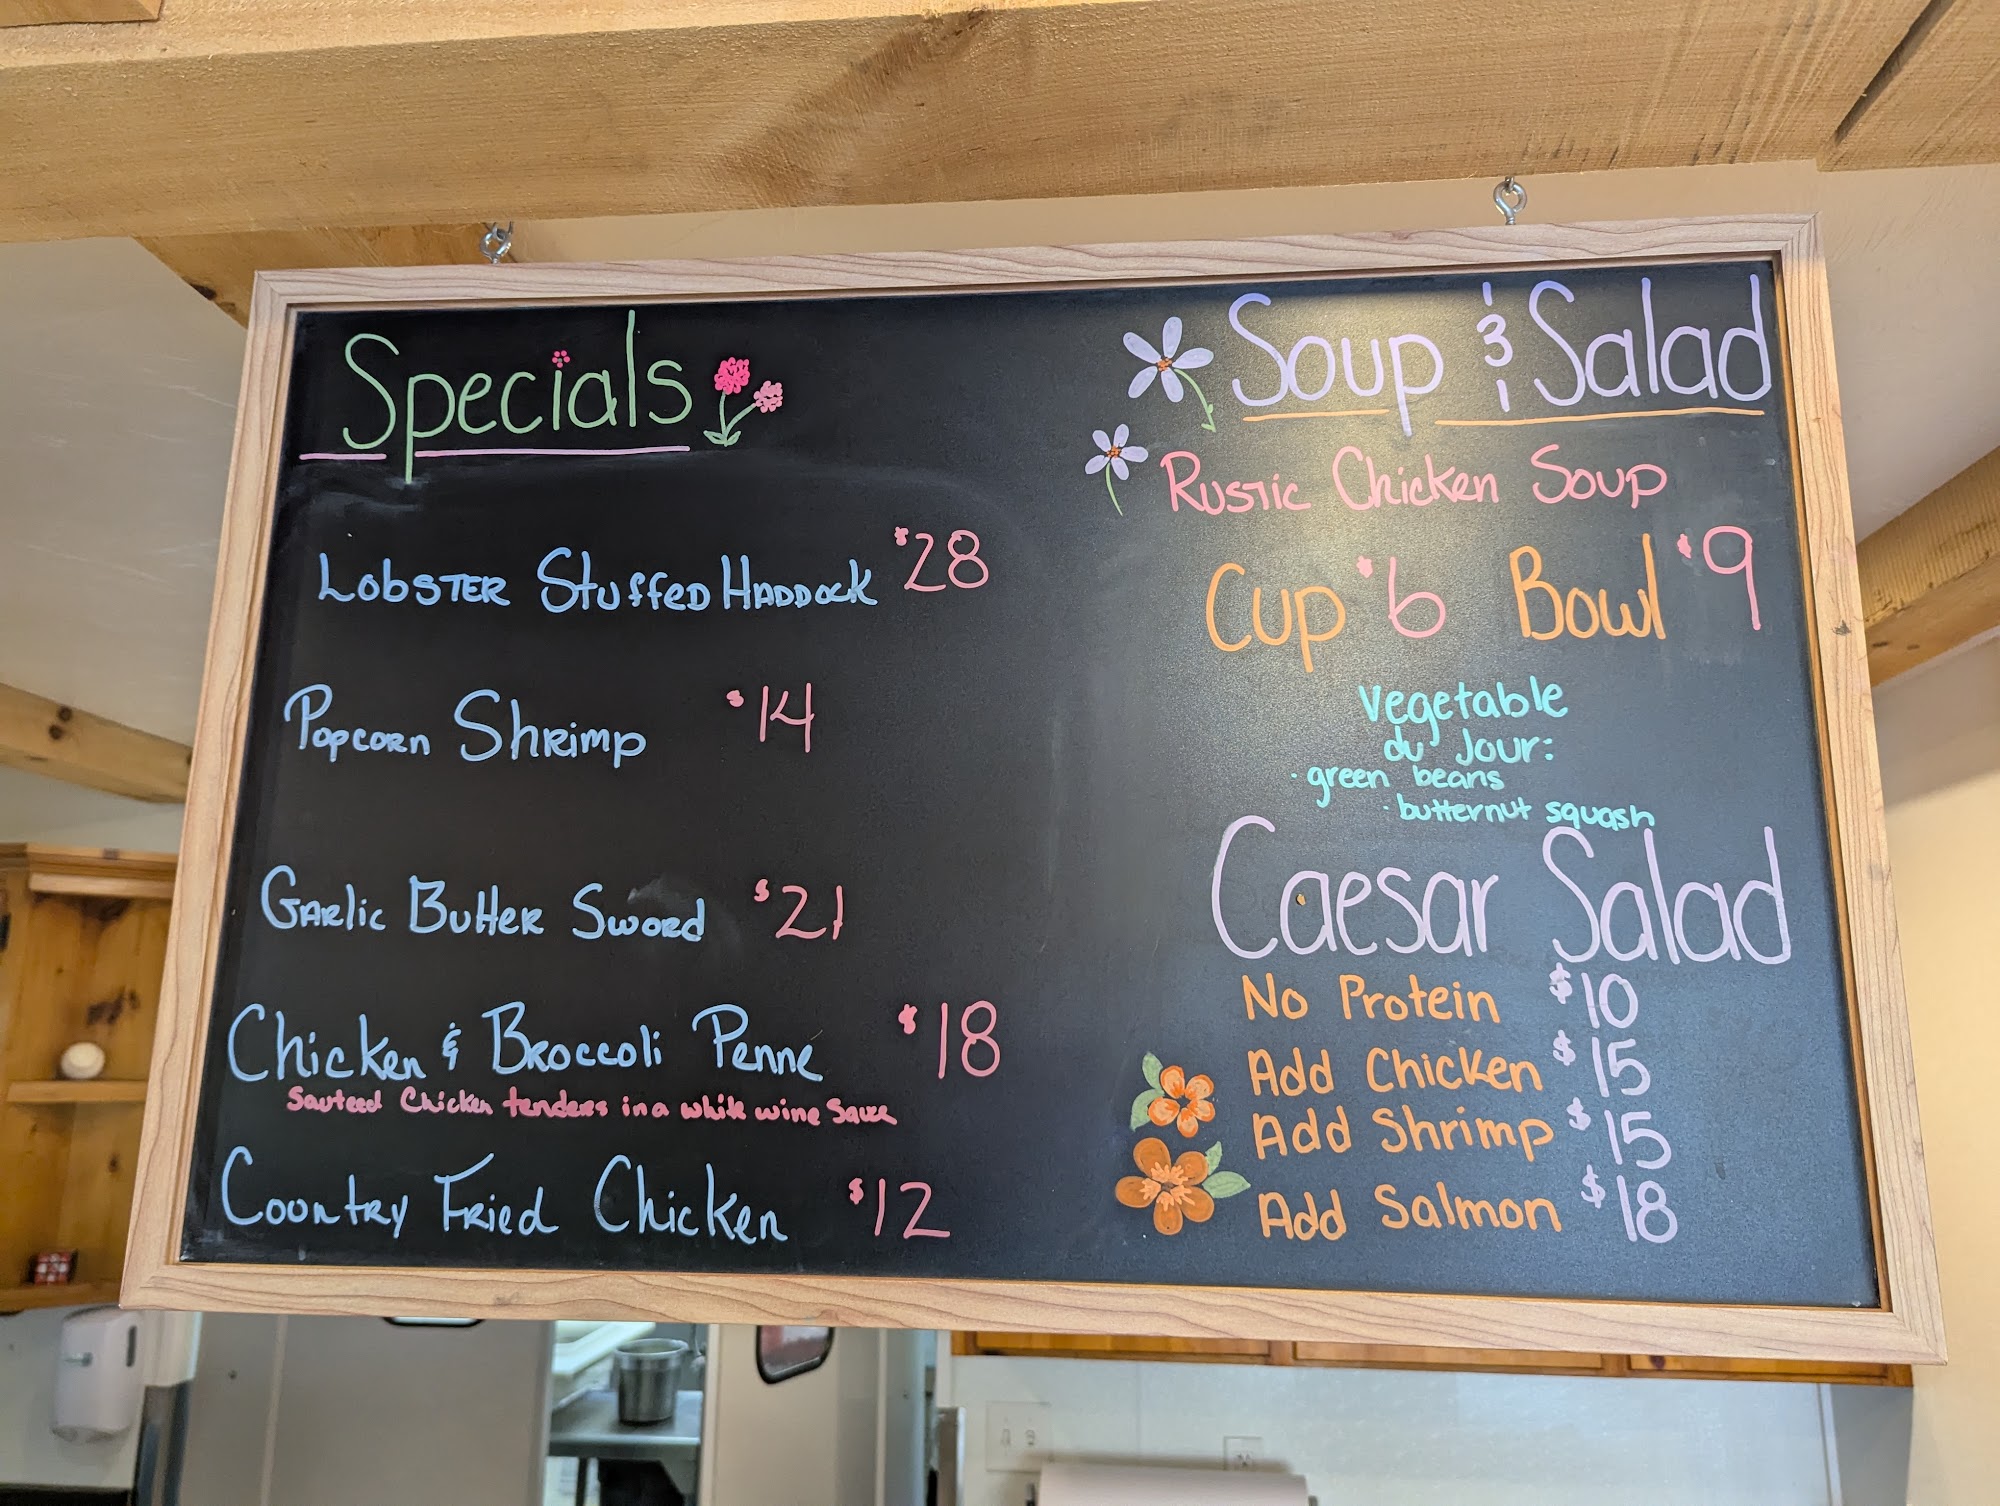 Specials
Lobster Stuffed Haddock $28
Popcorn Shrimp $14
Garlic Butter Sword $21
Chicken & Broccoli Penne $18
Sauteed Chicken tenders in a white wine Sauce
Country Fried Chicken $12
Soup & Salad
Rustic Chicken Soup
Cup $6 Bowl $9
Vegetable
du Jour:
· green beans
· butternut squash
Caesar Salad
No Protein $10
Add Chicken $15
Add Shrimp $15
Add Salmon $18